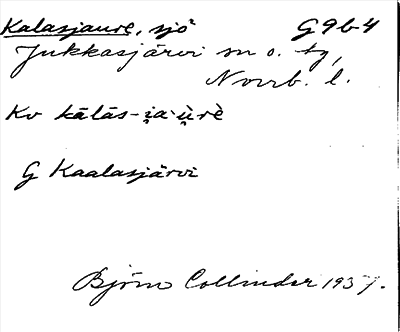 Kalasjaure, sjö G9b4
Jukkasjärvi sn o. tg,
Norrb. l.
Kv kālās-i̯a·ù̯rè
G Kaalasjärvi
Björn Collinder 1937.